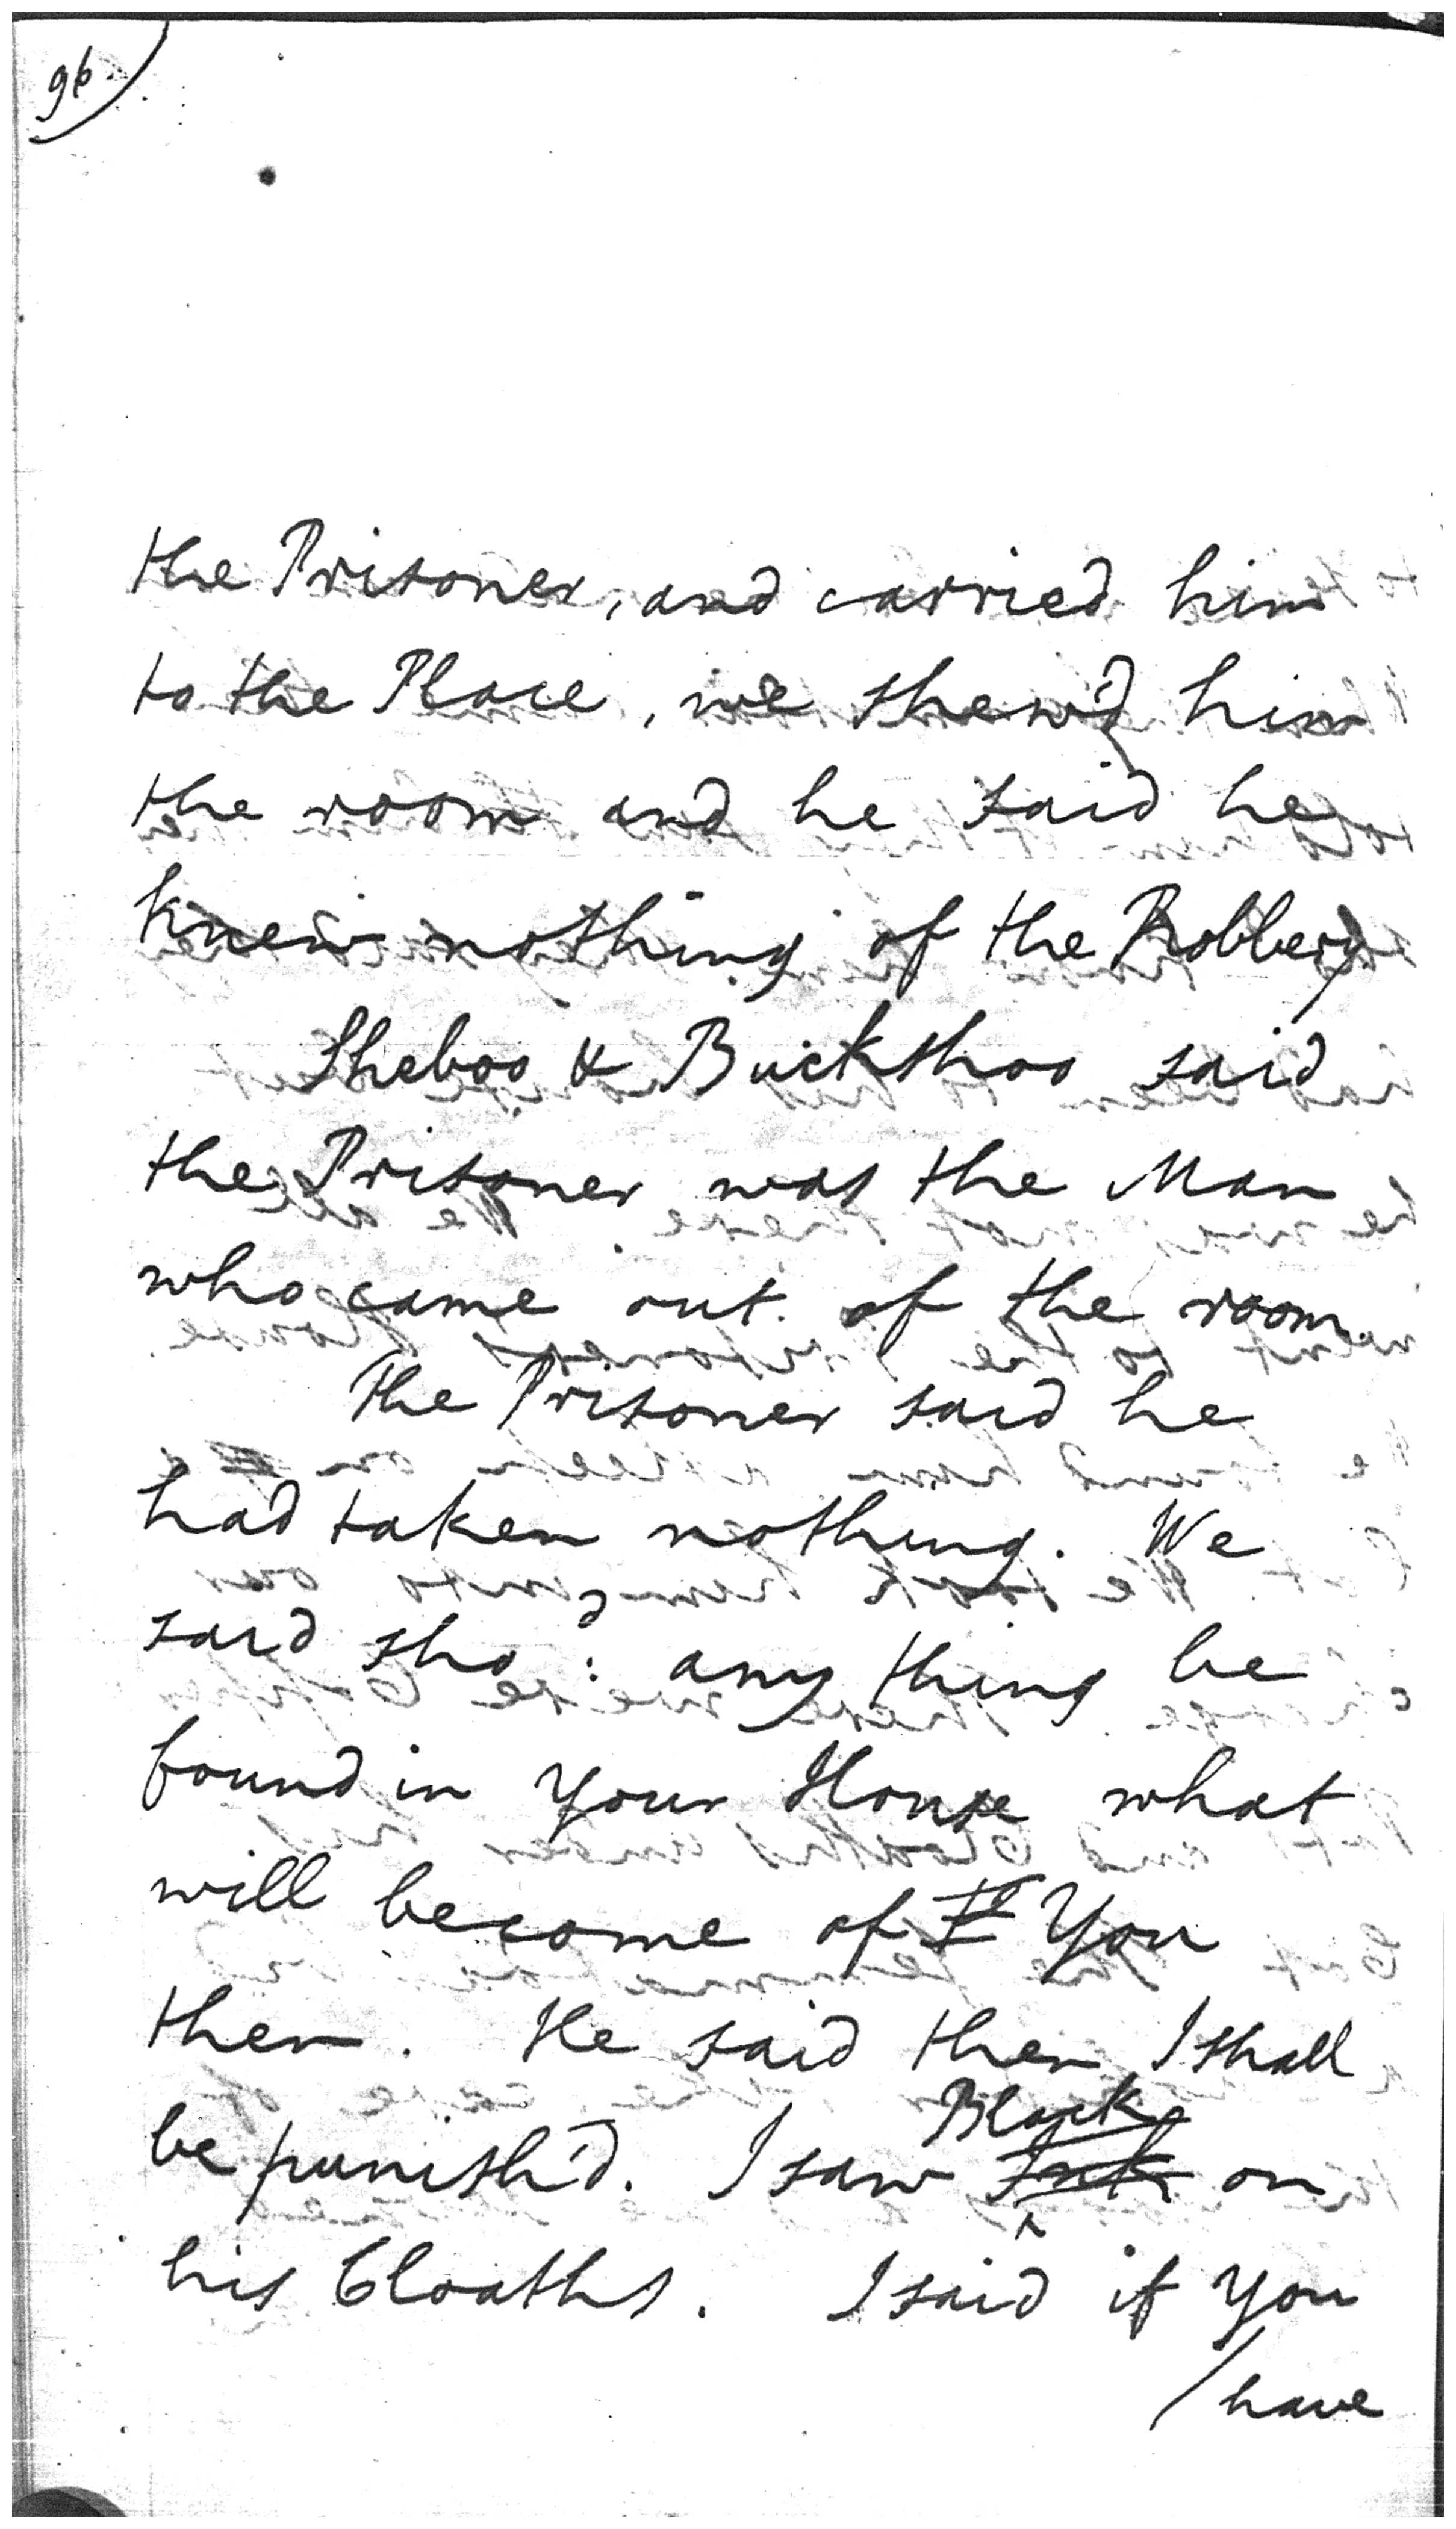 96.
the Prisoner, and carried him
to the Place, we shew'd him
the room and he said he
knew nothing of the Robbery
Sheboo & Buckshoo said
the Prisoner was the Man
who came out of the room.
The Prisoner said he
had taken nothing. We
said sho:d any thing be
found in your House what
will become of You
then. He said then I shall
be punish'd. I saw Black Ink on
his Cloaths. I said if you
/have